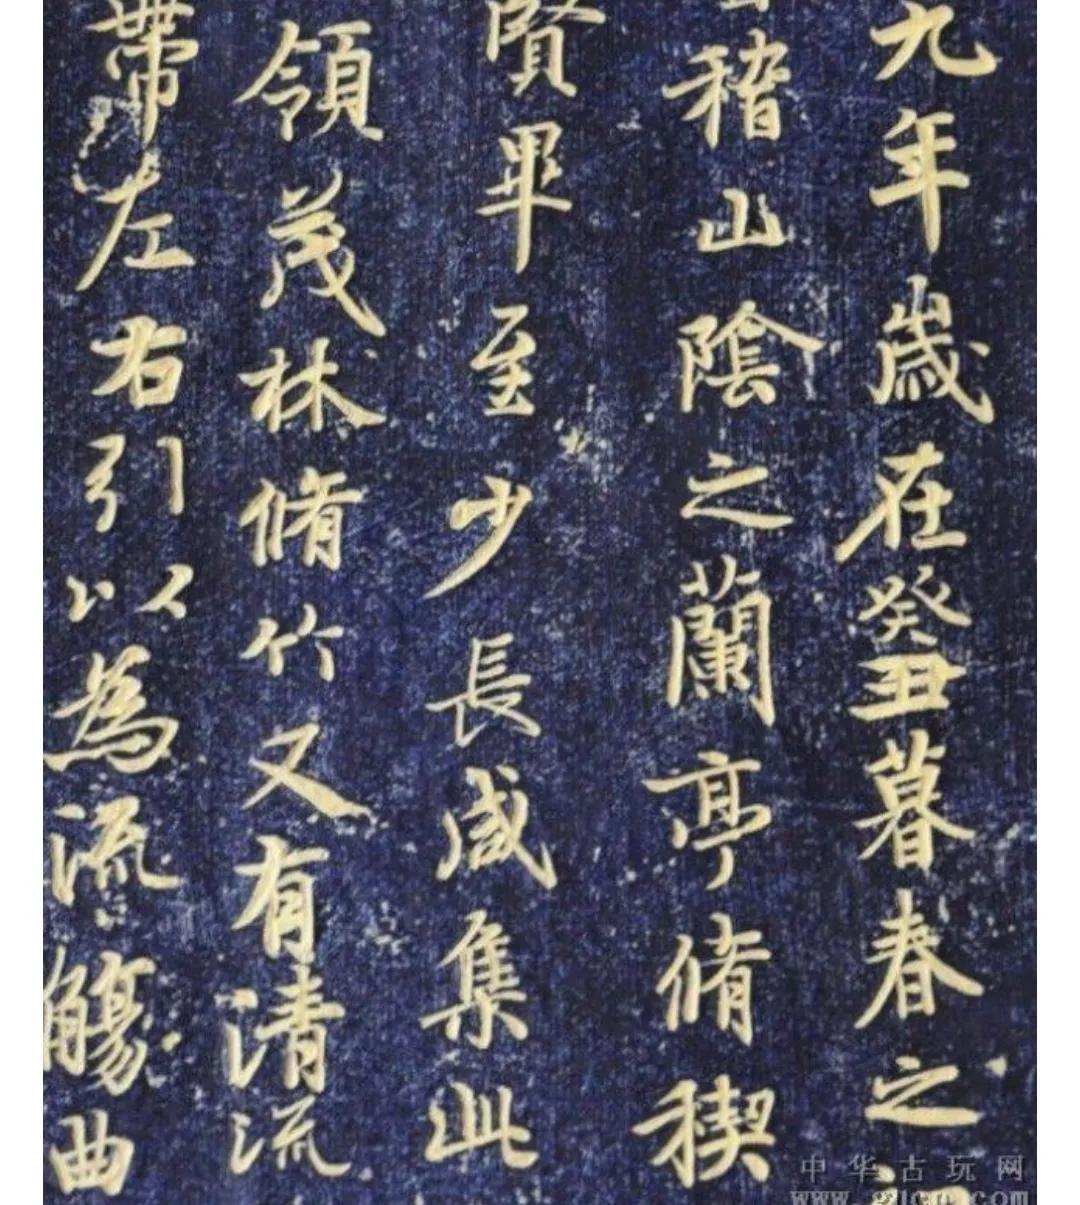 九年歲在癸丑暮春之初
稽山陰之蘭亭脩稧
賢畢至少長咸集此
領茂林脩竹又有清流
帶左右引以為流觴曲
中华古玩网